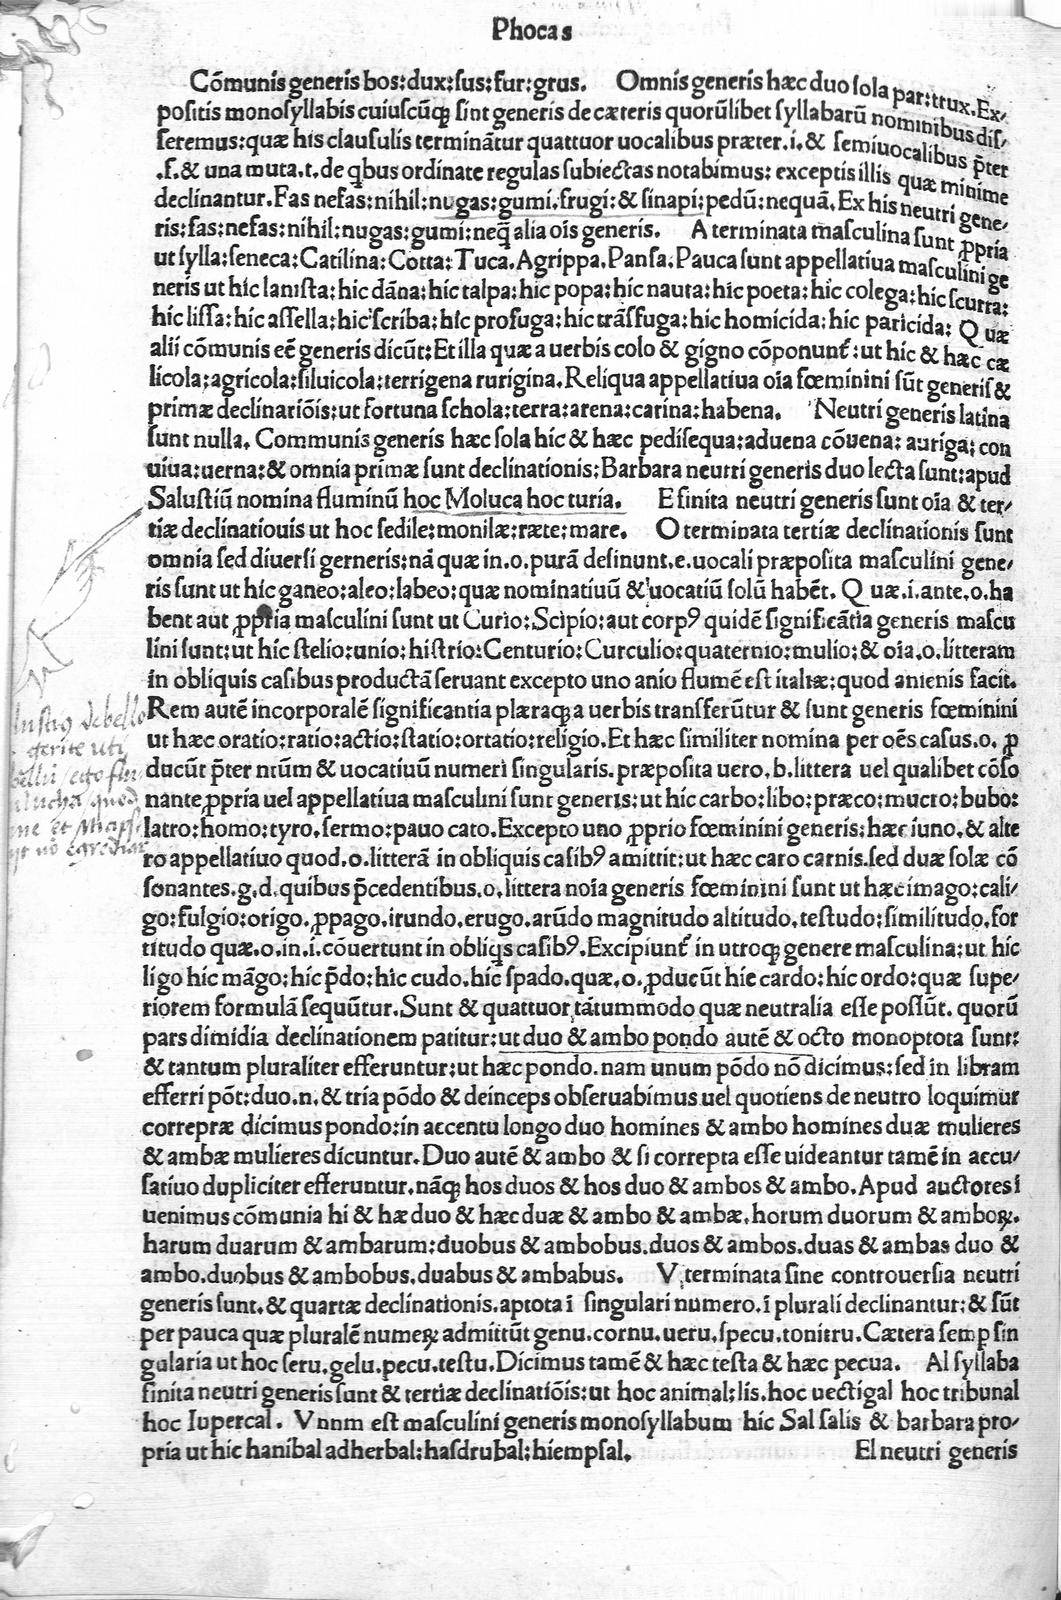 Phocas
Cōmunis generis bos:dux:sus:fur:grus. Omnis generis hæc duo sola par:trux. Ex/
positis monosyllabis cuiuscūqꝫ sint generis de cæteris quorūlibet syllabarū nominibus dis/
seremus:quæ his clausulis terminātur quattuor uocalibus præter.i.& semiuocalibus p̄ter
.f.& una muta.t.de qbus ordinate regulas subiectas notabimus: exceptis illis quæ minime
declinantur. Fas nefas:nihil:nugas:gumi.frugi:& sinapi:pedū:nequā. Ex his neutri gene/
ris:fas:nefas:nihil:nugas:gumi:neq̄ alia oīs generis. A terminata masculina sunt ꝓpria
ut sylla:seneca:Catilina:Cotta:Tuca.Agrippa.Pansa:Pauca sunt appellatiua masculini ge
neris ut hic lanista:hic dāna:hic talpa:hic popa:hic nauta:hic poeta:hic colega:hic scurra:
hic lissa:hic assella:hic scriba:hic profuga:hic trāsfuga:hic homicida:hic paricida: Quæ
alii cōmunis eē generis dicūt:Et illa quæ a uerbis colo & gigno cōponunt̄:ut hic & hæc cæ
licola:agricola:siluicola:terrigena rurigina.Reliqua appellatiua oīa fœminini sūt generis &
primæ declinatiōis:ut fortuna schola:terra:arena:carina:habena. Neutri generis latina
sunt nulla. Communis generis hæc sola hic & hæc pedisequa:aduena cōuena:auriga:con
uiua:uerna:& omnia primæ sunt declinationis:Barbara neutri generis duo lecta sunt:apud
Salustiū nomina fluminū hoc Moluca hoc turia. E finita neutri generis sunt oīa & ter/
tiæ declinatiouis ut hoc sedile:monilæ:ræte:mare. O terminata tertiæ declinationis sunt
omnia sed diuersi gerneris:nā quæ in.o.purā desinunt.e.uocali præposita masculini gene/
ris sunt ut hic ganeo:aleo:labeo:quæ nominatiuū & uocatiū solū habēt. Quæ.i.ante.o.ha
bent aut ꝓpria masculini sunt ut Curio:Scipio:aut corpꝰ quidē significātia generis mascu
lini sunt:ut hic stelio:unio:histrio:Centurio:Curculio:quaternio:mulio:& oīa.o.litteram
in obliquis casibus productā seruant excepto uno anio flumē est italiæ:quod anienis facit.
Rem autē incorporalē significantia plæraqꝫ a uerbis transferūtur & sunt generis fœminini
ut hæc oratio:ratio:actio:statio:ortatio:religio.Et hæc similiter nomina per oēs casus.o. ꝓ
ducūt p̄ter ntūm & uocatiuū numeri singularis. præposita uero.b.littera uel qualibet cōso
nante ꝓpria uel appellatiua masculini sunt generis:ut hic carbo:libo:præco:mucro:bubo:
latro:homo:tyro.sermo:pauo cato.Excepto uno ꝓprio fœminini generis:hæc iuno.& alte
ro appellatiuo quod.o.litterā in obliquis casibꝰ amittit:ut hæc caro carnis.sed duæ solæ cō
sonantes.g.d.quibus p̄cedentibus.o.littera noīa generis fœminini sunt ut hæc imago:cali/
go:fulgio:origo.ꝓpago.irundo.erugo.arūdo magnitudo altitudo.testudo:similitudo.for
titudo quæ.o.in.i.cōuertunt in obliqs casibꝰ.Excipiunt̄ in utroqꝫ genere masculina:ut hic
ligo hic māgo:hic p̄do:hic cudo.hic spado.quæ.o.ꝓducūt hic cardo:hic ordo:quæ supe/
riorem formulā sequūtur.Sunt & quattuor tātummodo quæ neutralia esse possūt. quorū
pars dimidia declinationem patitur:ut duo & ambo pondo autē & octo monoptota sunt:
& tantum pluraliter efferuntur:ut hæc pondo.nam unum pōdo nō dicimus:sed in libram
efferri pōt:duo.n.& tria pōdo & deinceps obseruabimus uel quotiens de neutro loquimur
correptæ dicimus pondo:in accentu longo duo homines & ambo homines duæ mulieres
& ambæ mulieres dicuntur.Duo autē & ambo & si correpta esse uideantur tamē in accu/
satiuo dupliciter efferuntur.nāqꝫ hos duos & hos duo & ambos & ambo.Apud auctores ī
uenimus cōmunia hi & hæ duo & hæc duæ & ambo & ambæ.horum duorum & amboꝝ.
harum duarum & ambarum:duobus & ambobus.duos & ambos.duas & ambas duo &
ambo.duobus & ambobus.duabus & ambabus. V terminata sine controuersia neutri
generis sunt.& quartæ declinationis.aptota ī singulari numero.ī plurali declinantur:& sūt
per pauca quæ pluralē numeꝝ admittūt genu.cornu.ueru.specu.tonitru.Cætera semp sin
gularia ut hoc seru.gelu.pecu.testu.Dicimus tamē & hæc testa & hæc pecua. Al syllaba
finita neutri generis sunt & tertiæ declinatiōis:ut hoc animal:lis.hoc uectigal hoc tribunal
hoc Iupercal. Vnnm est masculini generis monosyllabum hic Sal salis & barbara pro/
pria ut hic hanibal adherbal:hasdrubal:hiempsal. El neutri generis